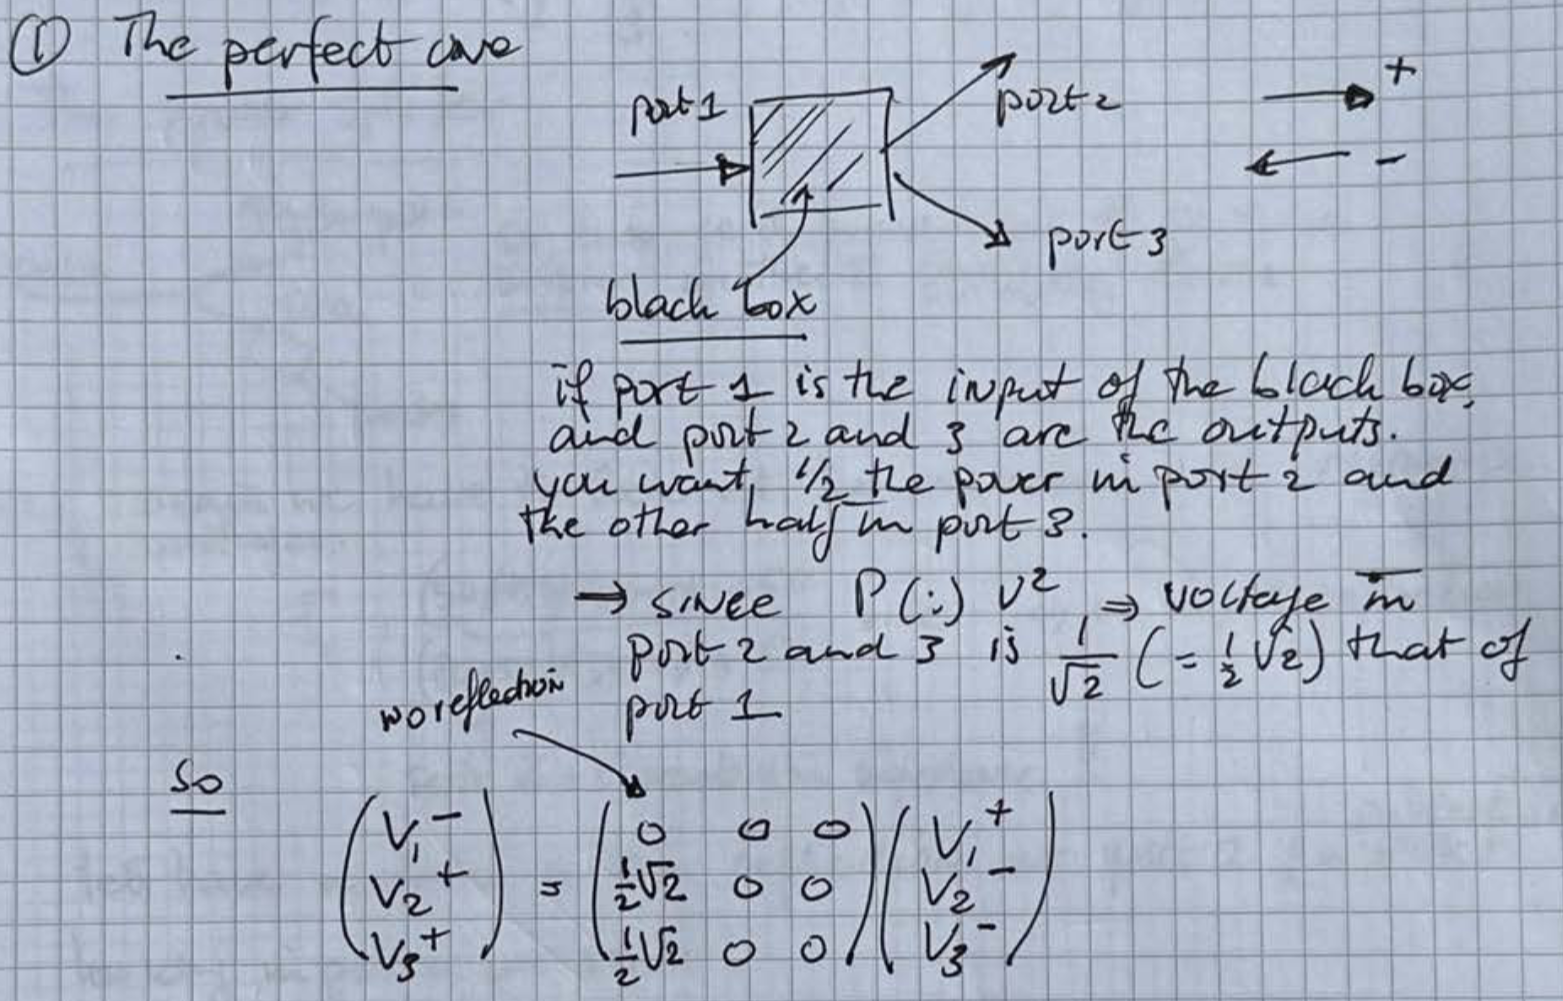 ① The perfect one
port 1
port 2
+
-
port 3
black box
if port 1 is the input of the black box,
and port 2 and 3 are the outputs.
you want, 1/2 the power in port 2 and
the other half in port 3.
→ since P (:) V² ⇒ voltage in
port 2 and 3 is 1/√2 (= ½√2) that of
port 1
no reflection
So
(V₁⁻) = (0 0 0) (V₁⁺)
(V₂⁺) (½√2 0 0) (V₂⁻)
(V₃⁺) (½√2 0 0) (V₃⁻)